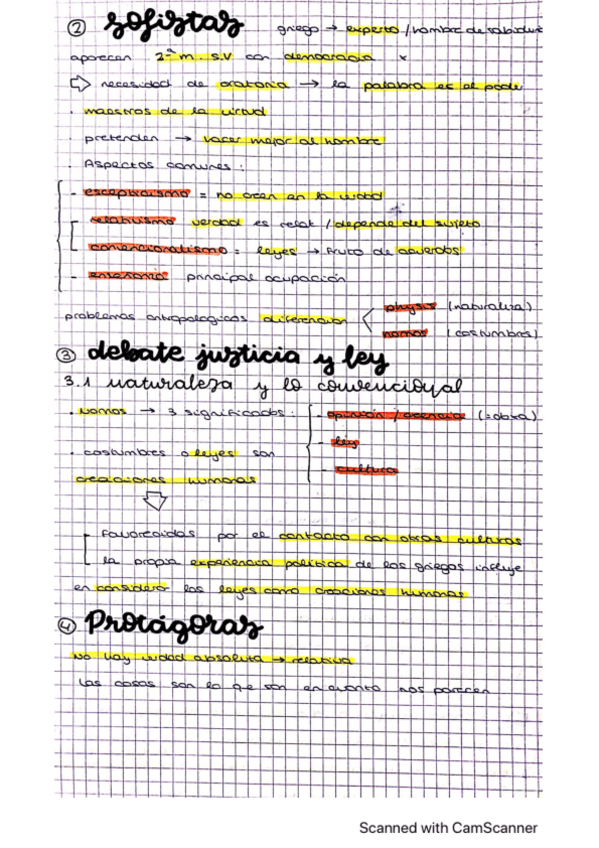 ② sofistas griego → experto / hombre de sabidur
aparecen 2ª m. s.V con democracia
⇨ necesidad de oratoria → la palabra es el pode
· maestros de la virtud
· pretenden → hacer mejor al hombre
· Aspectos comunes:
- escepticismo = no creen en la verdad
- relativismo verdad es relat / depende del sujeto
- convencionalismo = leyes → fruto de acuerdos
- enseñanza principal ocupación
problemas antropologicos diferencian
physis (naturaleza)
nomos (costumbres)
③ debate justicia y ley
3.1 naturaleza y lo convencional
· nomos → 3 significados:
- opinión / creencia (=doxa)
- ley
- cultura
· costumbres o leyes son
creaciones humanas
- favorecidas por el contacto con otras culturas
- la propia experiencia política de los griegos influye
en considerar las leyes como creaciones humanas
④ Protágoras
No hay verdad absoluta → relativa
Las cosas son lo que son en cuanto nos parecen
Scanned with CamScanner